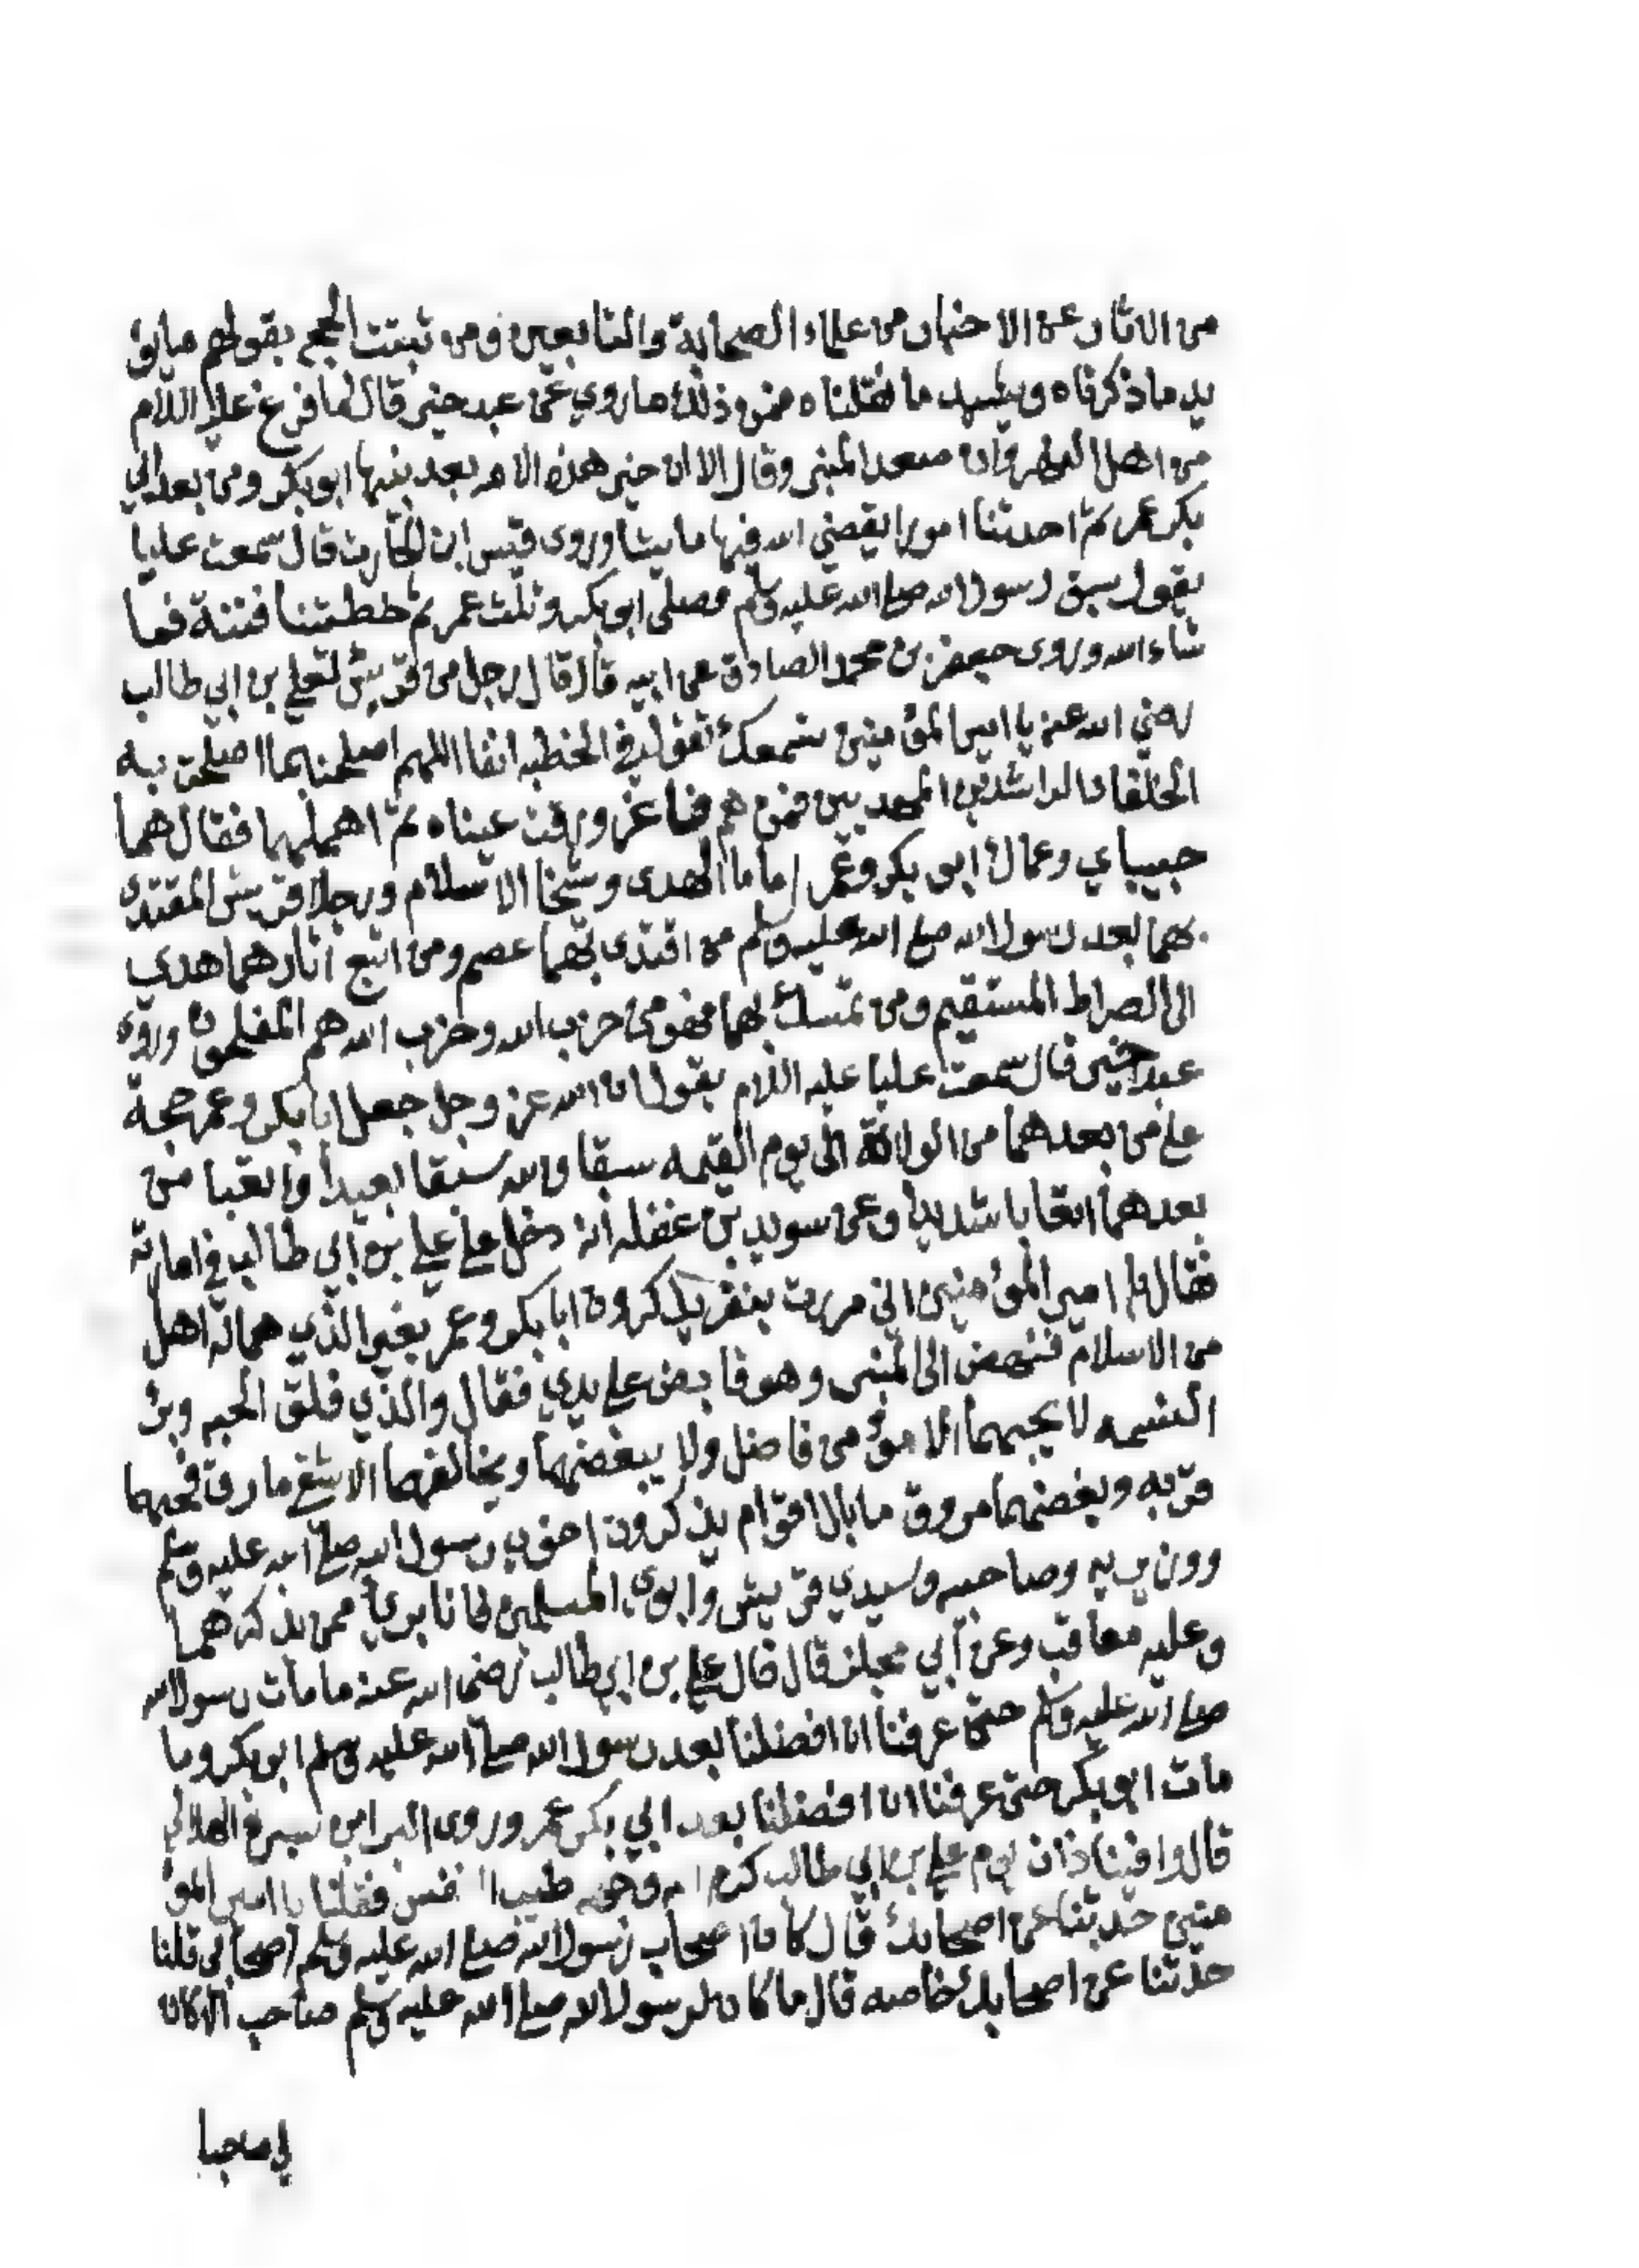 من الاثار عن الاخيار من علماء الصحابة والتابعين ومن تبتت الحجج بقولهم ما يؤ
يد ما ذكرناه ويشيد ما نقلناه فمن ذلك ما روي عن عبد خير قال لما فرغ علي عليه السلام
من اهل النهروان صعد المنبر وقال الا ان خير هذه الامه بعد نبيها ابو بكر ومن بعد ابي
بكر عمر ثم احدثنا امورا يقضي الله فيها ما يشا وروى قيس ابن الحارث قال سمعت عليا
يقول سبق رسول الله صلى الله عليه وسلم وصلى ابو بكر وثلث عمر ثم خطتنا فتنة فما
شاء الله وروى جعفر بن محمد الصادق عن ابيه قال قال رجل من قريش لعلي بن ابي طالب
رضي الله عنه يا امير المؤمنين سمعتك تقول في الخطبه انفا اللهم اصلحنا بما اصلحت به
الخلفاء الراشدين المهديين فمن هم فاغرورقت عيناه ثم اهملهما فقال هما
حبيباي وعماك ابو بكر وعمر اماما الهدى وشيخا الاسلام ورجلا قريش المقتدى
بهما بعد رسول الله صلى الله عليه وسلم من اقتدى بهما عصم ومن اتبع اثارهما هدي
الى الصراط المستقيم ومن تمسك بهما فهو من حزب الله وحزب الله هم المفلحون وروى
عبد خير قال سمعت عليا عليه السلام يقول ان الله عز وجل جعل ابا بكر وعمر حجة
على من بعدهما من الولاة الى يوم القيمه سبقا والله سبقا بعيدا واتعبا من
بعدهما اتعابا شديدا وعن سويد بن غفله انه دخل على علي بن ابي طالب في امارته
فقال يا امير المؤمنين اني مررت بنفر يذكرون ابا بكر وعمر بغير الذي هما له اهل
من الاسلام فنهض الى المنبر وهو قابض على يدي فقال والذي فلق الحبه وبرئ
النسمه لا يحبهما الا مؤمن فاضل ولا يبغضهما ويخالفهما الا شقي مارق فحبهما
قربه وبغضهما مروق ما بال اقوام يذكرون اخوي رسول الله صلى الله عليه وسلم
ووزيريه وصاحبيه وسيدي قريش وابوي المسلمين فانا بريء ممن يذكرهما
وعليه معاقب وعن ابي مجلز قال قال علي بن ابي طالب رضي الله عنه ما مات رسول الله
صلى الله عليه وسلم حتى عرفنا ان افضلنا بعد رسول الله صلى الله عليه وسلم ابو بكر وما
مات ابو بكر حتى عرفنا ان افضلنا بعد ابي بكر عمر وروى النزال بن سبرة الهلالي
قال وافينا ذات يوم علي بن ابي طالب كرم الله وجهه طيب النفس فقلنا يا امير المؤ
منين حدثنا عن اصحابك قال كل اصحاب رسول الله صلى الله عليه وسلم اصحابي قلنا
حدثنا عن اصحابك خاصه قال ما كان لرسول الله صلى الله عليه وسلم صاحب الا كان
لي صاحبا